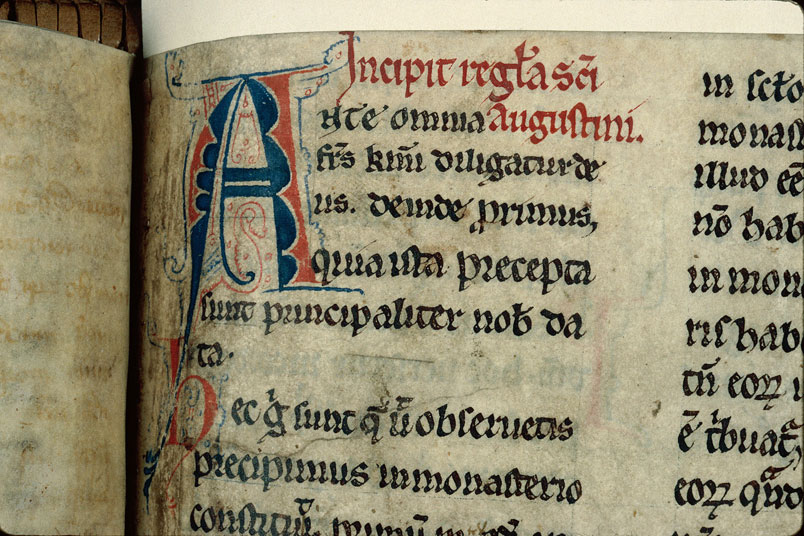 Incipit regl̃a sc̃i
Ante omnia Augustini.
fr̃s kr̃mi diligatur de
us. deinde ꝓximus,
quia ista precepta
sunt principaliter nob̃ da
ta.
Hec g̃ sunt q̃ ũ obseruetis
precipimus in monasterio
constituti. primũ
in sc̃o
monast
illud eẽ
nõ hab
in mona
ris hab
tũ eoꝝ u
ẽ
eoꝝ